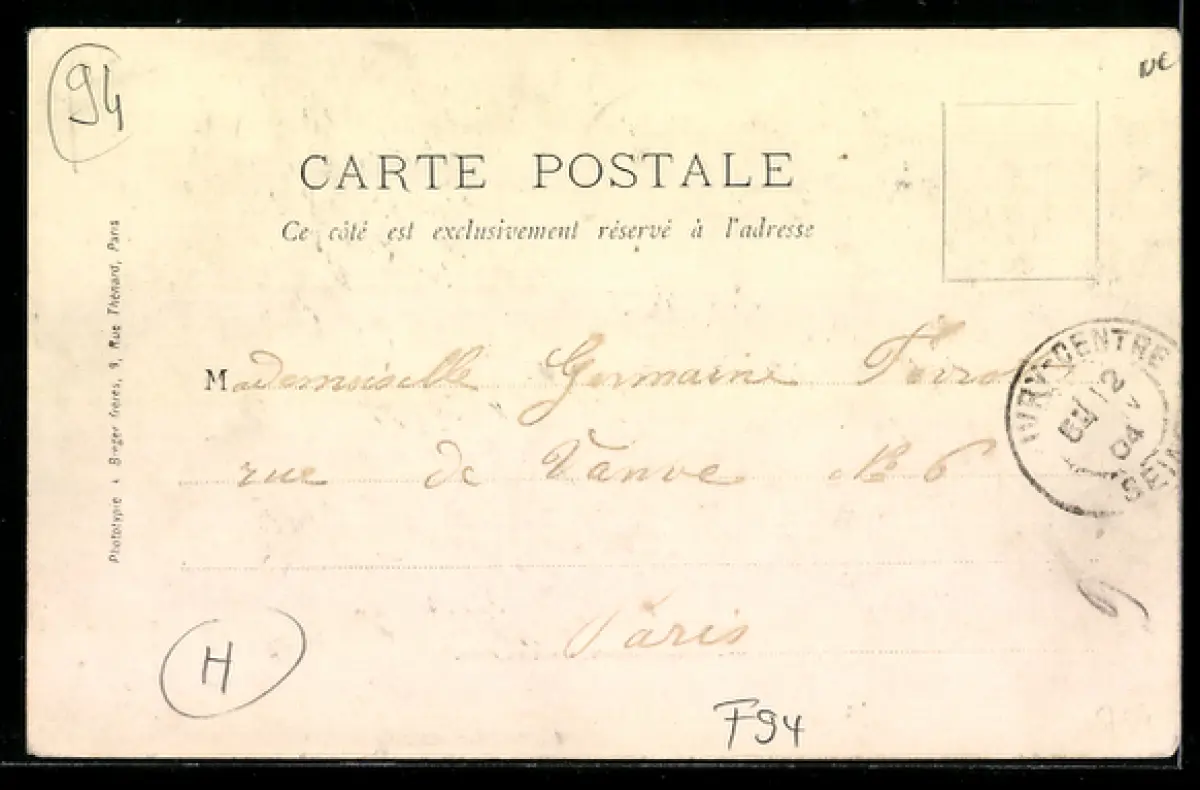 94
NE
CARTE POSTALE
Ce côté est exclusivement réservé à l'adresse
Phototypie Breger frères, 9, Rue Thénard, Paris
Mademoiselle Germaine
rue de Vanve No 6
Paris
IVRY-CENTRE
12
04
SEINE
H
F94